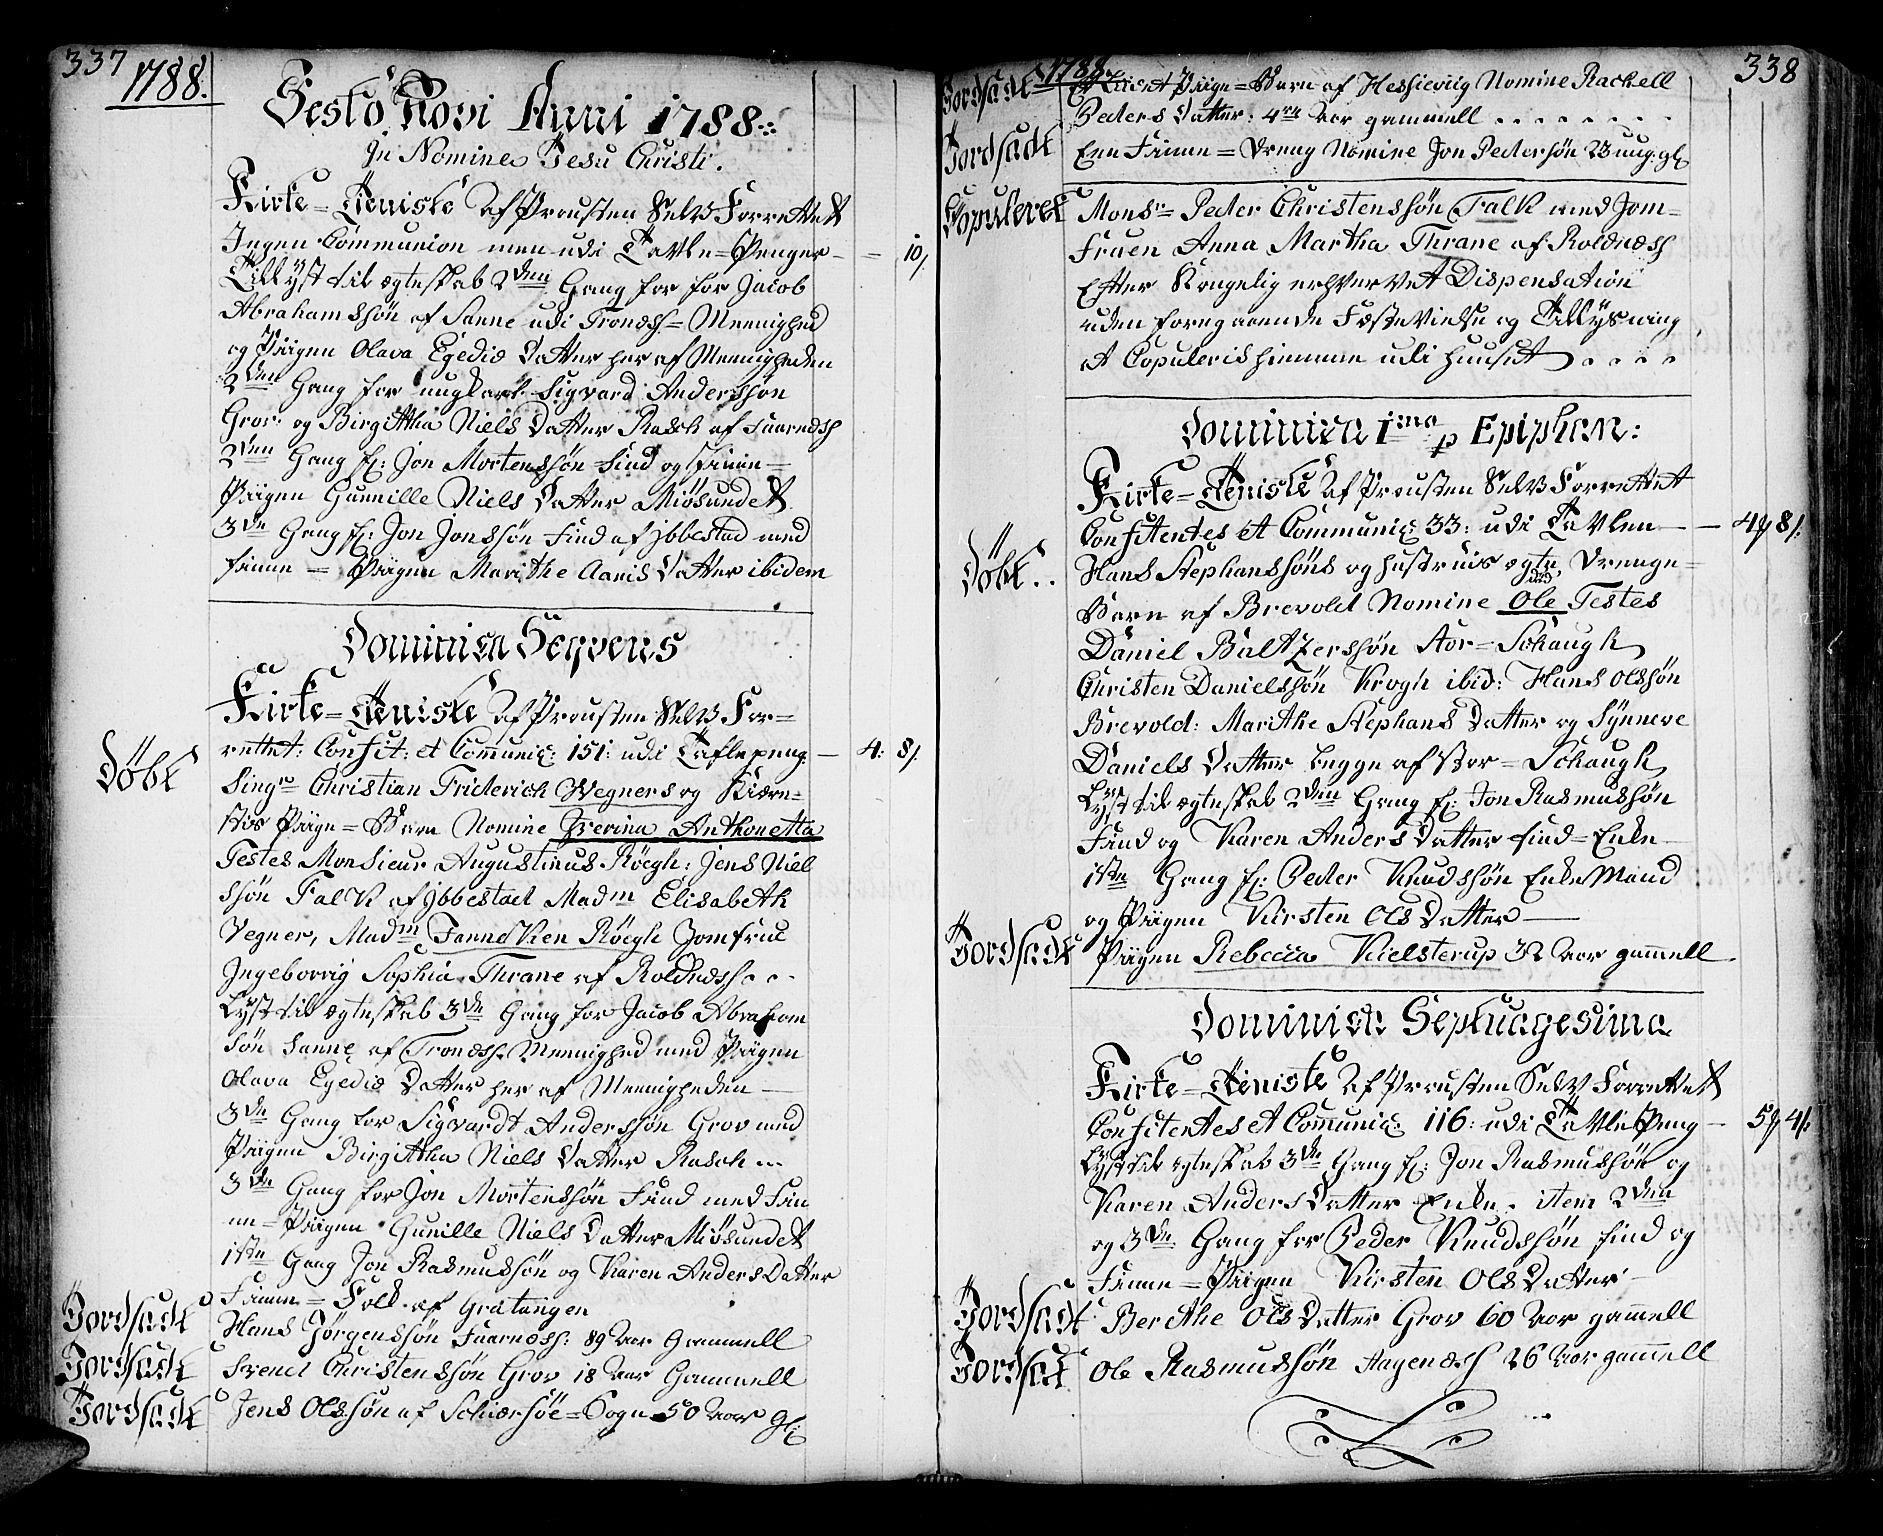 337
1788.
Festo Novi Anni 1788
In Nomine Jesu Christi.
Kirke-Tieniste af Prousten Selv Forrettet
Ingen Communion men udi Tavle-Penger - = 10/.
Tillyst til ægteskab 2den Gang for for Jacob
Abrahamssøn af Sanne udi Tronæss-Meenighed
og Piigen Olava Egedia Datter her af Meenigheden
2den Gang for ungkarl Sigvard Anderssøn
Grov og Birgittha Niels Datter Rasch af Faarnæss
2den Gang f: Jon Mortenssøn find og finne-
Piigen Gunnille Niels Datter Miøsundet
3de Gang f: Jon Jonssøn Find af Jbbestad med
finne - Piigen Marithe Aanis Datter ibidem
Dominica Seqvens
Kirke-Tieniste af Prousten Selv For=
rettet: Confit: et Communic: 151: udi Taflepeng - 4: 8/.
Døbt
Singr Christian Friderich Wegners og Kiære-
stis Piige-Barn Nomine Zverina Anthonetta
Testes Monsieur Augustinus Röegh: Jens Niel
ssøn Falk af Jbbestad Madm Elisabeth
Vegner, Madm Fanneken Röegh Jomfrue
Ingeborrig Sophia Thrane af Roldnæss
Lyst til ægteskab 3de Gang for Jacob Abraham
søn Sanne af Tronæss Meenighed med Piigen
Olava Egedia Datter her af Meenigheden
3de Gang for Sigvardt Anderssøn Grov med
Piigen Birgittha Niels Datter Rasch
3de Gang for Jon Mortenssøn Find med Fin
ne-Piigen Gunille Niels Datter Miösundet
1ste Gang Jon Rasmussøn og Karen Anders Datter
Finne-Folk af Gratangen
Jordfæstet Hans Jørgenssøn Faarnæss: 89 Aar Gammell
Jordfæstet Svend Christenssøn Grov 18 Aar Gammell
Jordfæstet Jens Olssøn af Schiersöe-Sogn 50 Aar gl:
338
1788.
Jordfæstet Et Piige-Barn af Nomine Rachell
Peders Datter: 4re Aar gammell
Jordfæstet Een Finne-Dreng Nomine Jon Pederssøn
Copuleret Monsr Peder Christenssøn Falk med Jom-
fruen Anna Martha Thrane af Roldnæss
Efter Kongelig erhvervet Dispensation
uden foregaaende Fæstevielse og Tillysning
at Copuleris hiemme udi Huuset
Dominica 1ma p Epiphan:
Kirke-Tieniste af Prousten Selv Forrettet
Confitentes et Communic: 33: udi Tavlen - 4 8/.
Døbt Hans Stephanssøns og hustruis ægte Drenge-
Barn af Brevold Nomine Ole Testes
Daniel Baltzerssøn Stor-Schaugh
Christen Danielssøn Krogh ibid: Hans Olssøn
Brevold: Marithe Stephans Datter og Synneve
Daniels Datter begge af Stor-Schaugh
Lyst til ægteskab 2den Gang f: Jon Rasmussøn
Find og Karen Anders Datter find-Enke
1ste Gang f: Peder Knudssøn Enke Mand
og Piigen Kirsten Ols Datter
Jordfæstet Piigen Rebecca Kielsterup 32 Aar gammell
Dominica Septuagesima
Kirke-Tieniste af Prousten Selv Forrettet
Confitentes et Communic: 116: udi TavlePeng - 5 4/.
Lyst til ægteskab 3de Gang f: Jon Rasmussøn og
Karen Anders Datter Enke. item 2den
og 3de Gang for Peder Knudssøn find og
Finne-Piigen Kirsten Ols Datter
Jordfæstet Berithe Ols Datter Grov 60 Aar gammell
Jordfæstet Ole Rasmussøn Hagenæss 26 Aar gammell